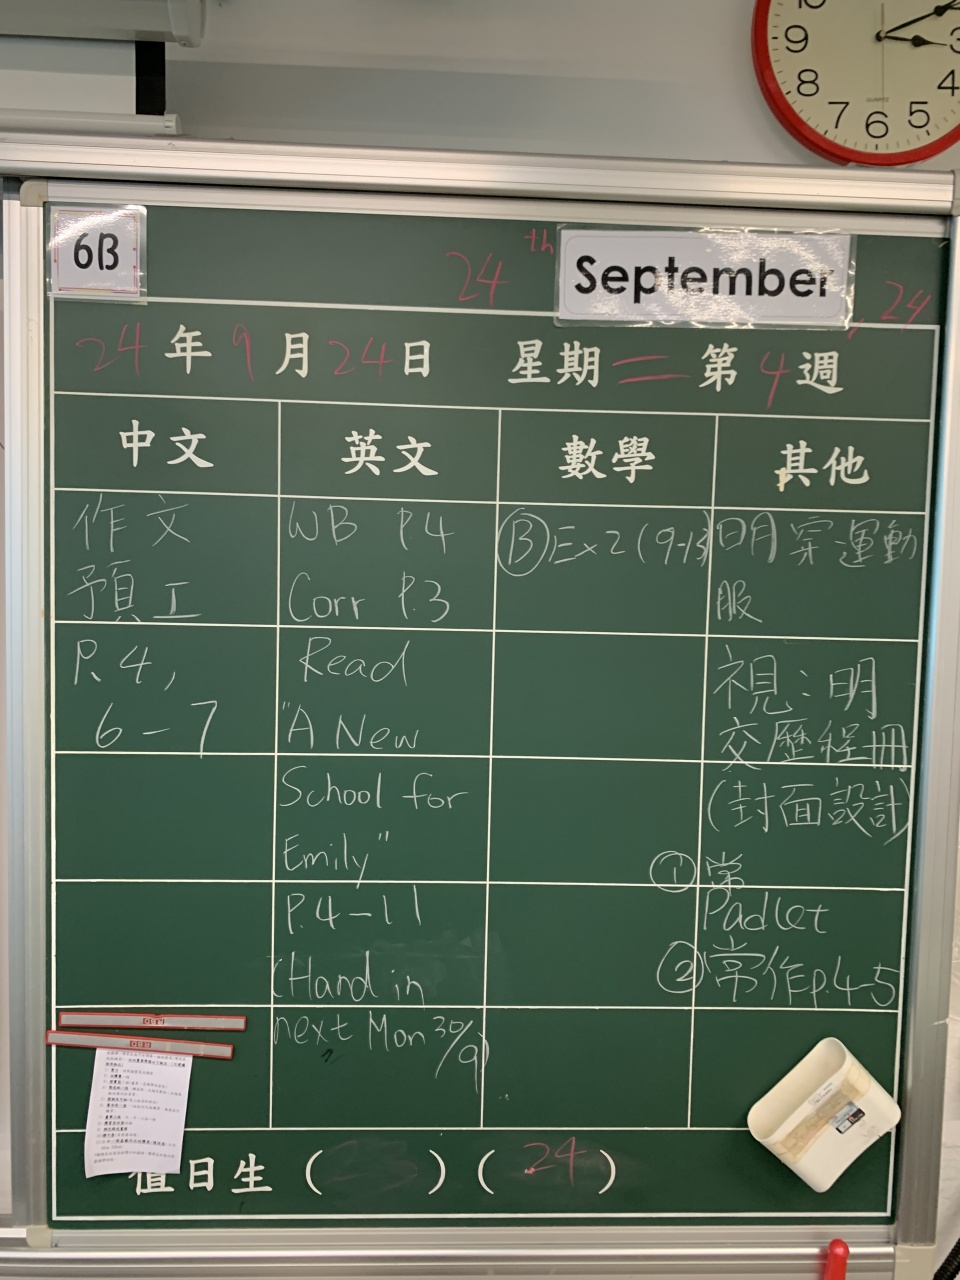 10
9
3
8
4
7
5
6
QUARTZ
6B
24th September, 24
24年9月24日 星期二 第4週
中文
作文
預工
P.4,
6-7
英文
WB P.4
Corr P.3
Read
"A New
School for
Emily"
P.4-11
(Hand in
next Mon 30/9)
數學
Ⓑ Ex 2 (9-13)
其他
明穿運動
服
視:明
交歷程冊
(封面設計)
① 常
Padlet
② 常作p.4-5
值日生 ( ) ( 24 )